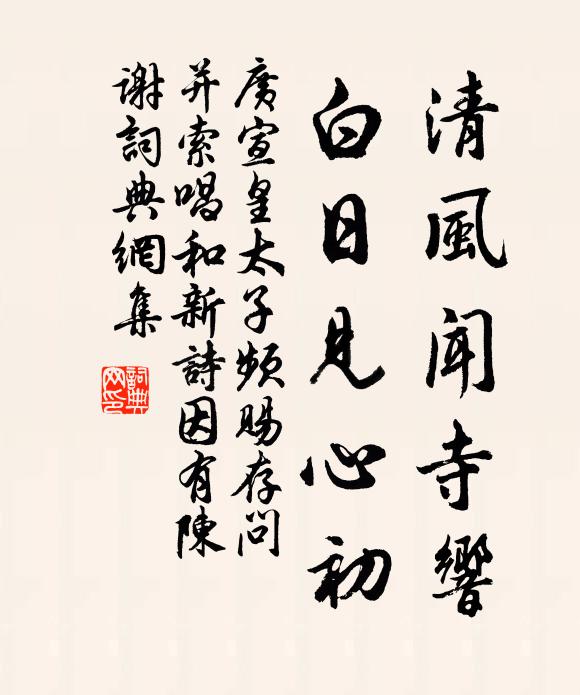 清風聞寺響
白日見心初
廣宣皇太子頻賜存問
并索唱和新詩因有陳
謝詞典網集
詞典
网印